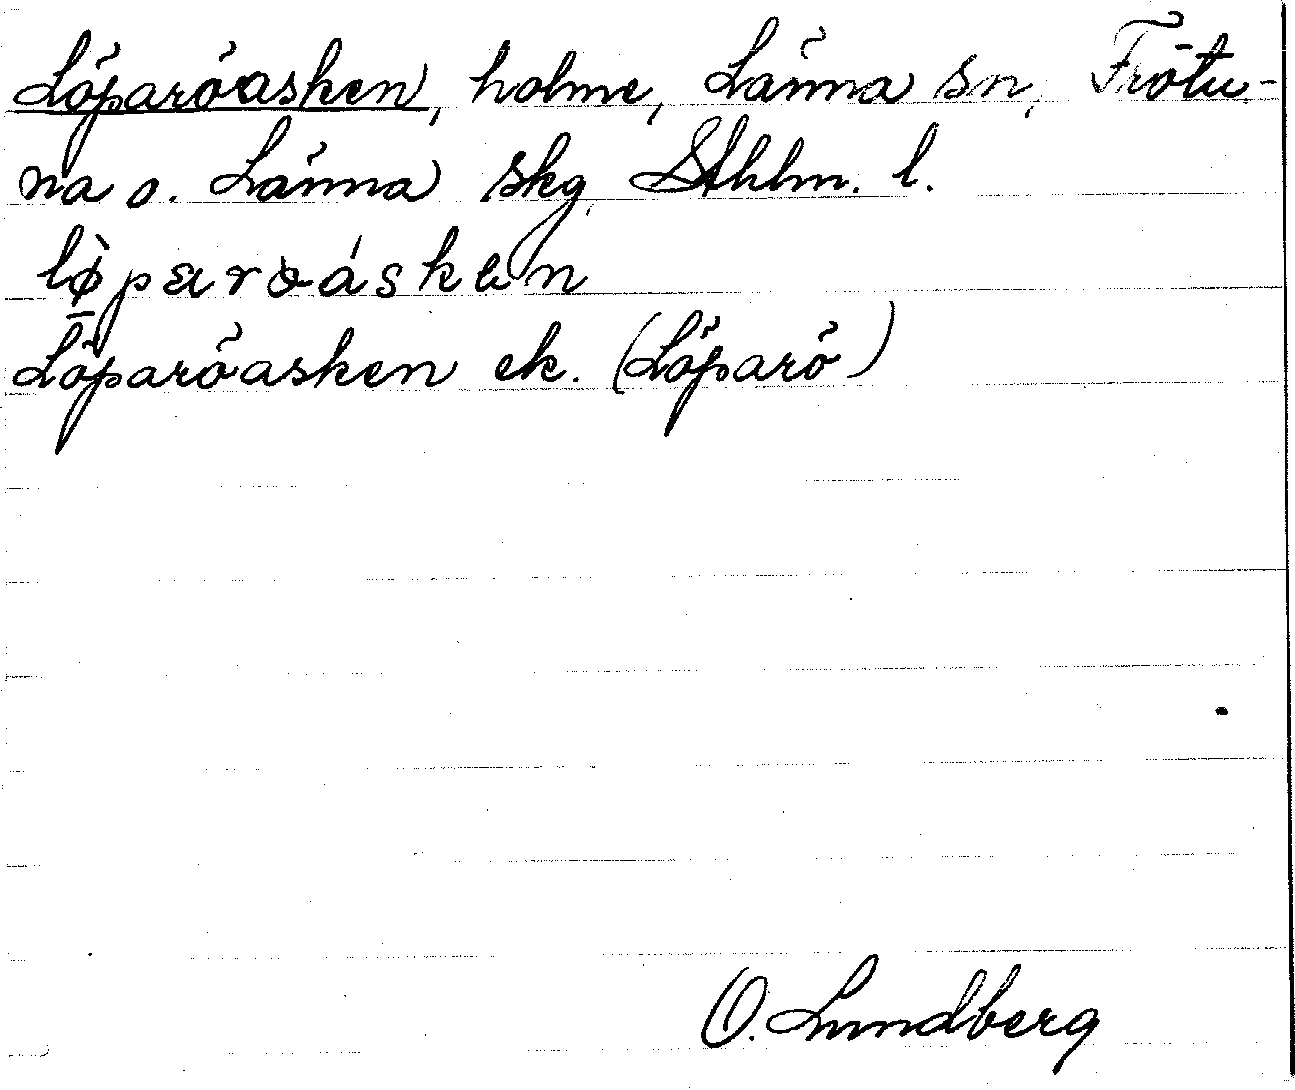 Löparöasken, holme, Länna sn, Frötu-
na o. Länna skg Sthlm. l.
lø̀paroásken
Löparöasken ek. (Löparö)
O. Lundberg